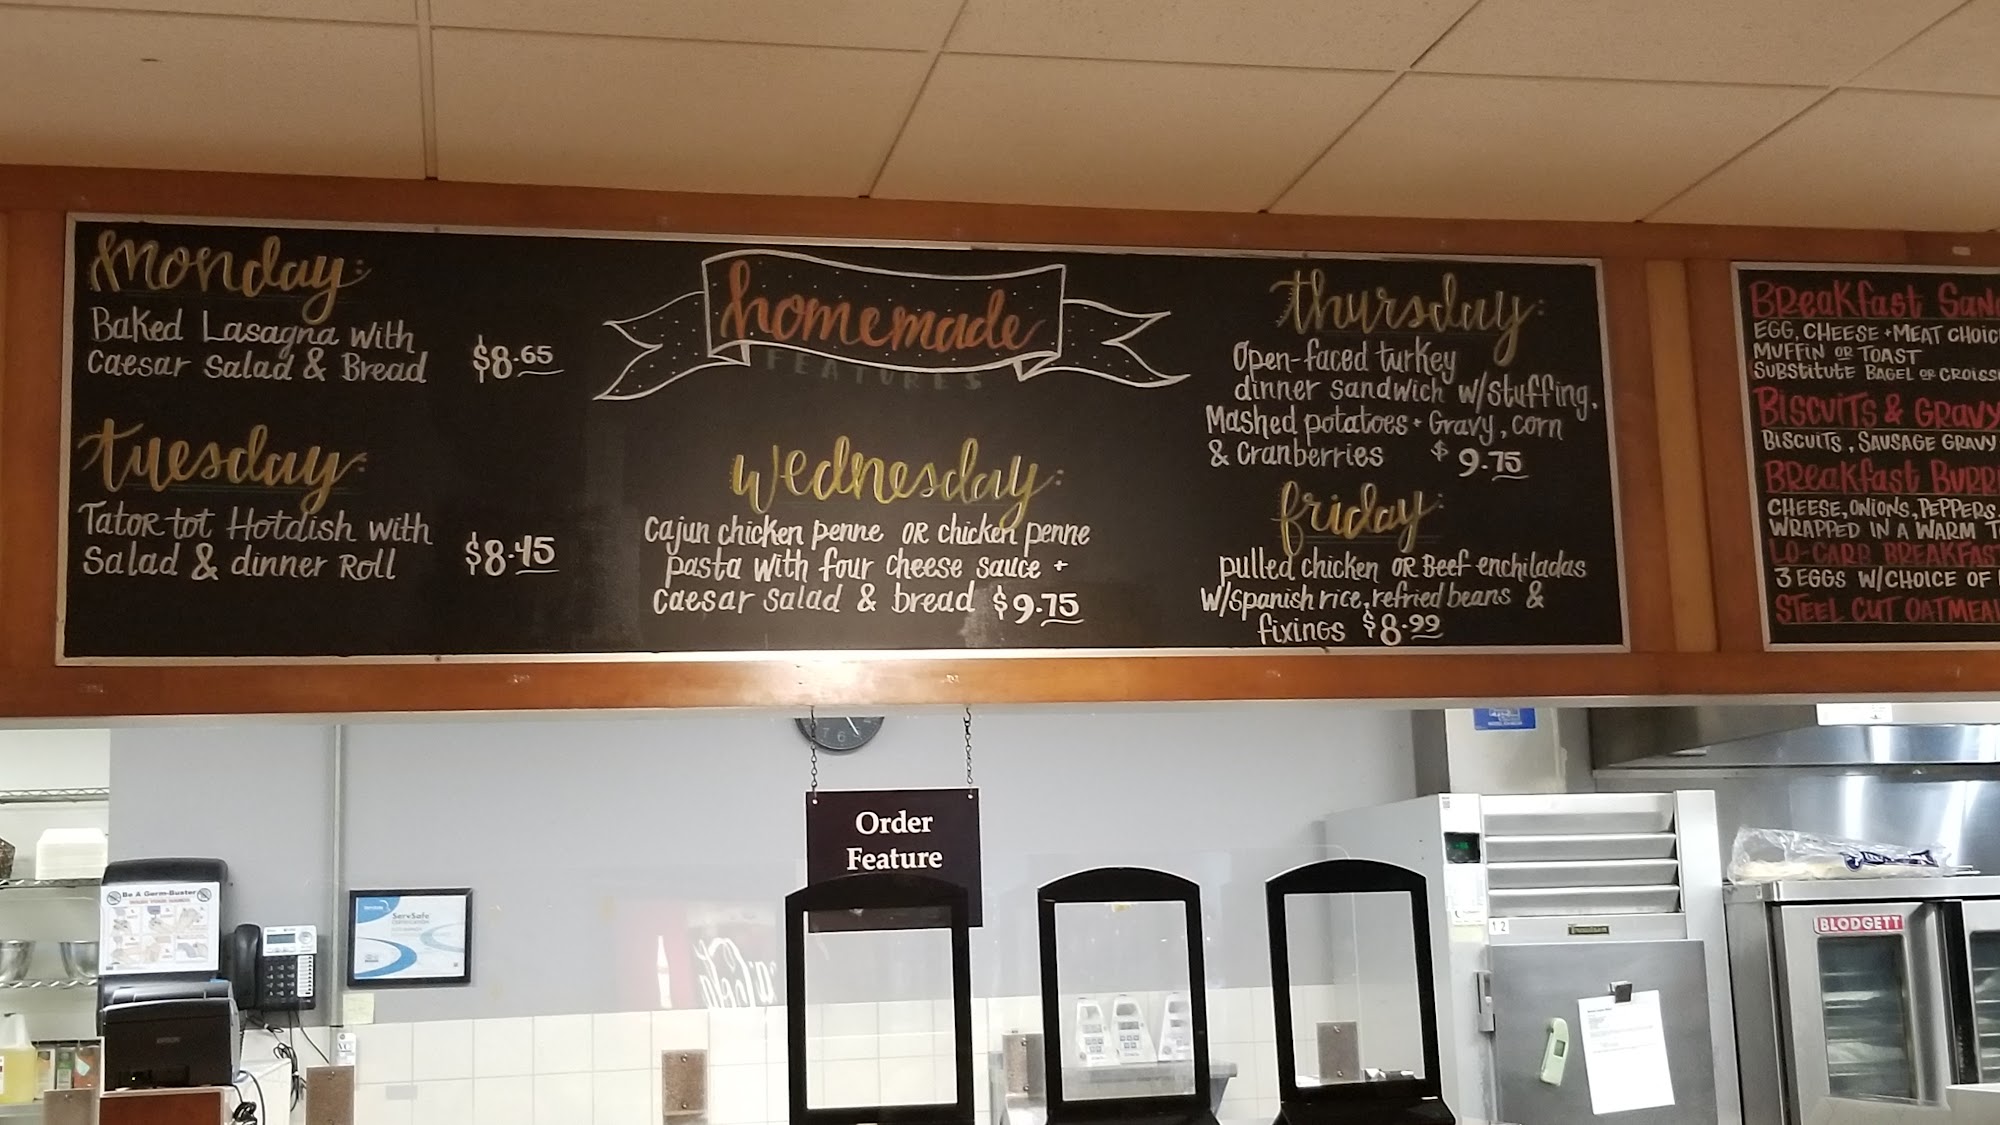 Monday:
Baked Lasagna with
Caesar Salad & Bread
$8.65
Tuesday:
Tator tot Hotdish with
Salad & dinner Roll
$8.45
homemade
FEATURES
Wednesday:
Cajun chicken penne OR chicken penne
pasta with four cheese sauce +
Caesar Salad & bread $9.75
Thursday:
Open-faced turkey
dinner sandwich w/stuffing,
Mashed potatoes + Gravy, corn
& Cranberries $9.75
friday:
pulled chicken OR Beef enchiladas
w/spanish rice, refried beans &
fixings $8.99
Breakfast
EGG, CHEESE + MEAT
MUFFIN OR TOAST
SUBSTITUTE BAGEL OR
BISCUITS & GRAVY
BISCUITS, SAUSAGE GRAVY
BREAKFAST
CHEESE, ONIONS, PEPPERS
WRAPPED IN A WARM
LO-CARB BREAKFAST
3 EGGS W/CHOICE OF
STEEL CUT OATMEAL
Order
Feature
Be A Germ-Buster
ServSafe
7 6
12
BLODGETT